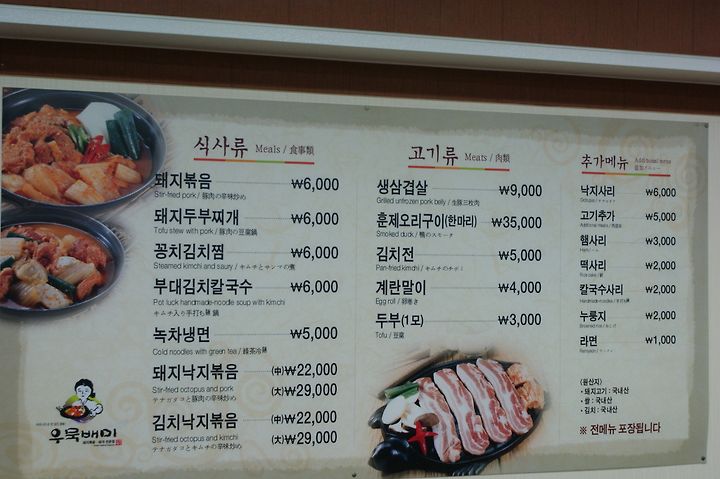 식사류 Meals / 食事類
돼지볶음 ₩6,000
Stir-fried pork / 豚肉の辛味炒め
돼지두부찌개 ₩6,000
Tofu stew with pork / 豚肉の豆腐鍋
꽁치김치찜 ₩6,000
Steamed kimchi and saury / キムチとサンマの煮
부대김치칼국수 ₩6,000
Pot luck handmade-noodle soup with kimchi
キムチ入り手打ち麺 鍋
녹차냉면 ₩5,000
Cold noodles with green tea / 綠茶冷麵
돼지낙지볶음 (中)₩22,000
Stir-fried octopus and pork (大)₩29,000
テナガダコと豚肉の辛味炒め
김치낙지볶음 (中)₩22,000
Stir-fried octopus and kimchi (大)₩29,000
テナガダコとキムチの辛味炒め
고기류 Meats / 肉類
생삼겹살 ₩9,000
Grilled unfrozen pork belly / 生豚三枚肉
훈제오리구이(한마리) ₩35,000
Smoked duck / 鴨のスモーク
김치전 ₩5,000
Pan-fried kimchi / キムチのチヂミ
계란말이 ₩4,000
Egg roll / 卵巻き
두부(1모) ₩3,000
Tofu / 豆腐
추가메뉴 Additional menu
追加メニュー
낙지사리 ₩6,000
Octopus / テナガダコ
고기추가 ₩5,000
Additional Meats /
햄사리 ₩3,000
Ham / ハム
떡사리 ₩2,000
Rice cake / 餅
칼국수사리 ₩2,000
Handmade-noodles / 手打ち麺
누룽지 ₩2,000
라면 ₩1,000
Ramyeon / ラーメン
(원산지)
• 돼지고기 : 국내산
• 쌀 : 국내산
• 김치 : 국내산
※ 전메뉴 포장됩니다
우묵배미